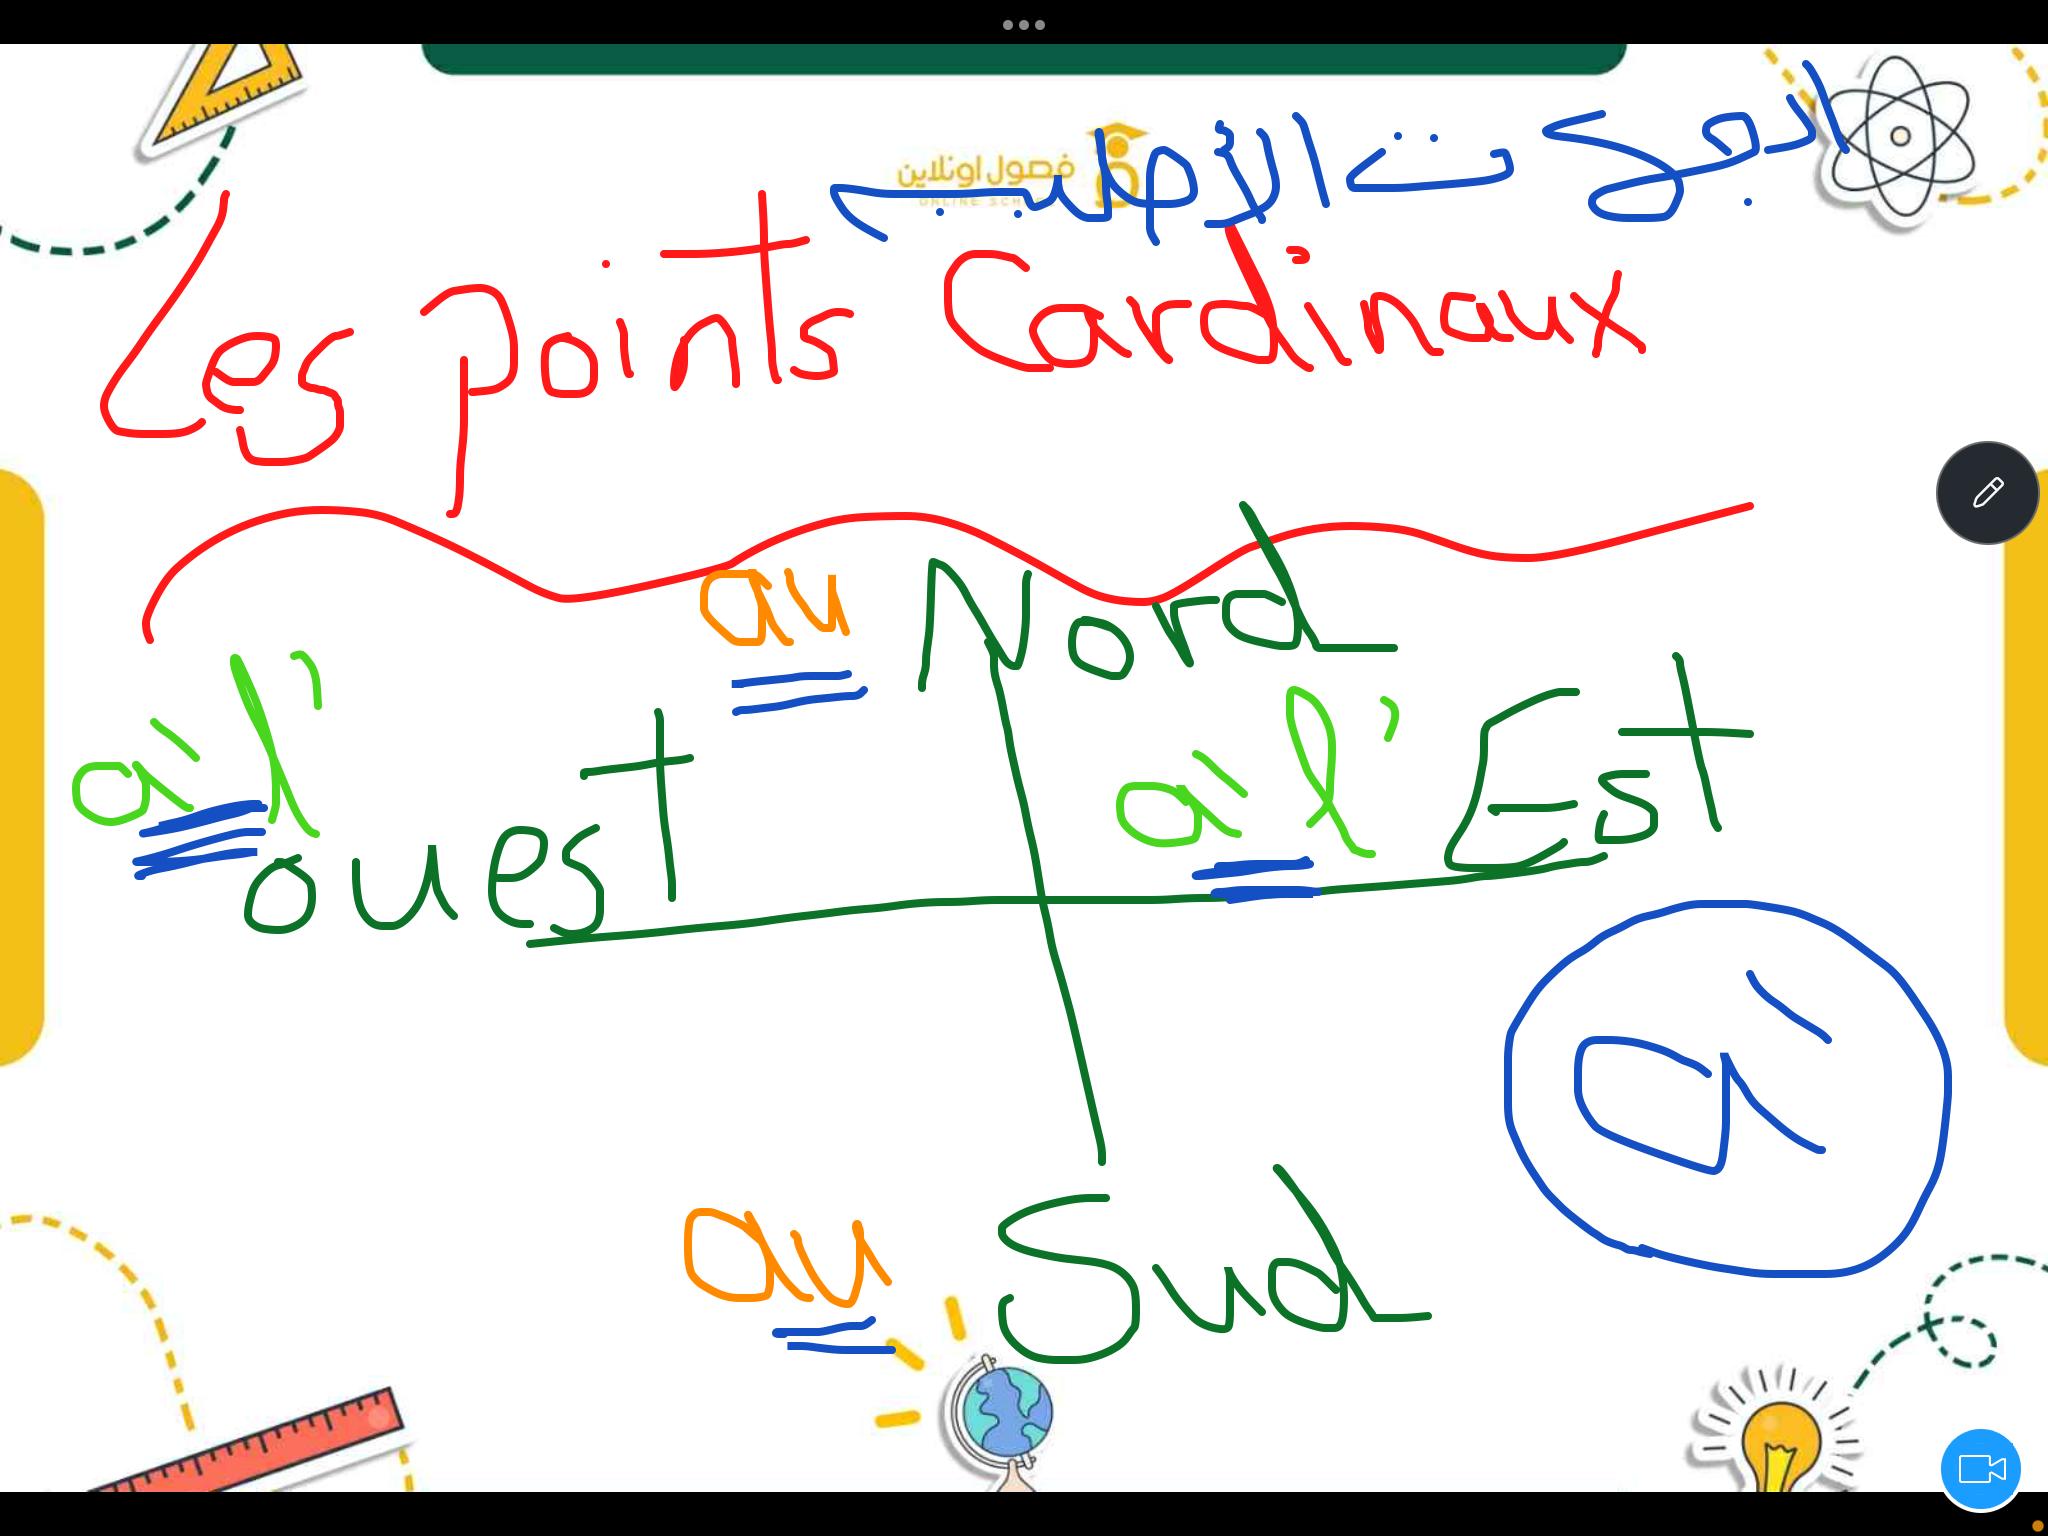 فصول اونلاين
ONLINE SCH
Les points Cardinaux
au Nord
à l' ouest
à l' Est
à
au Sud